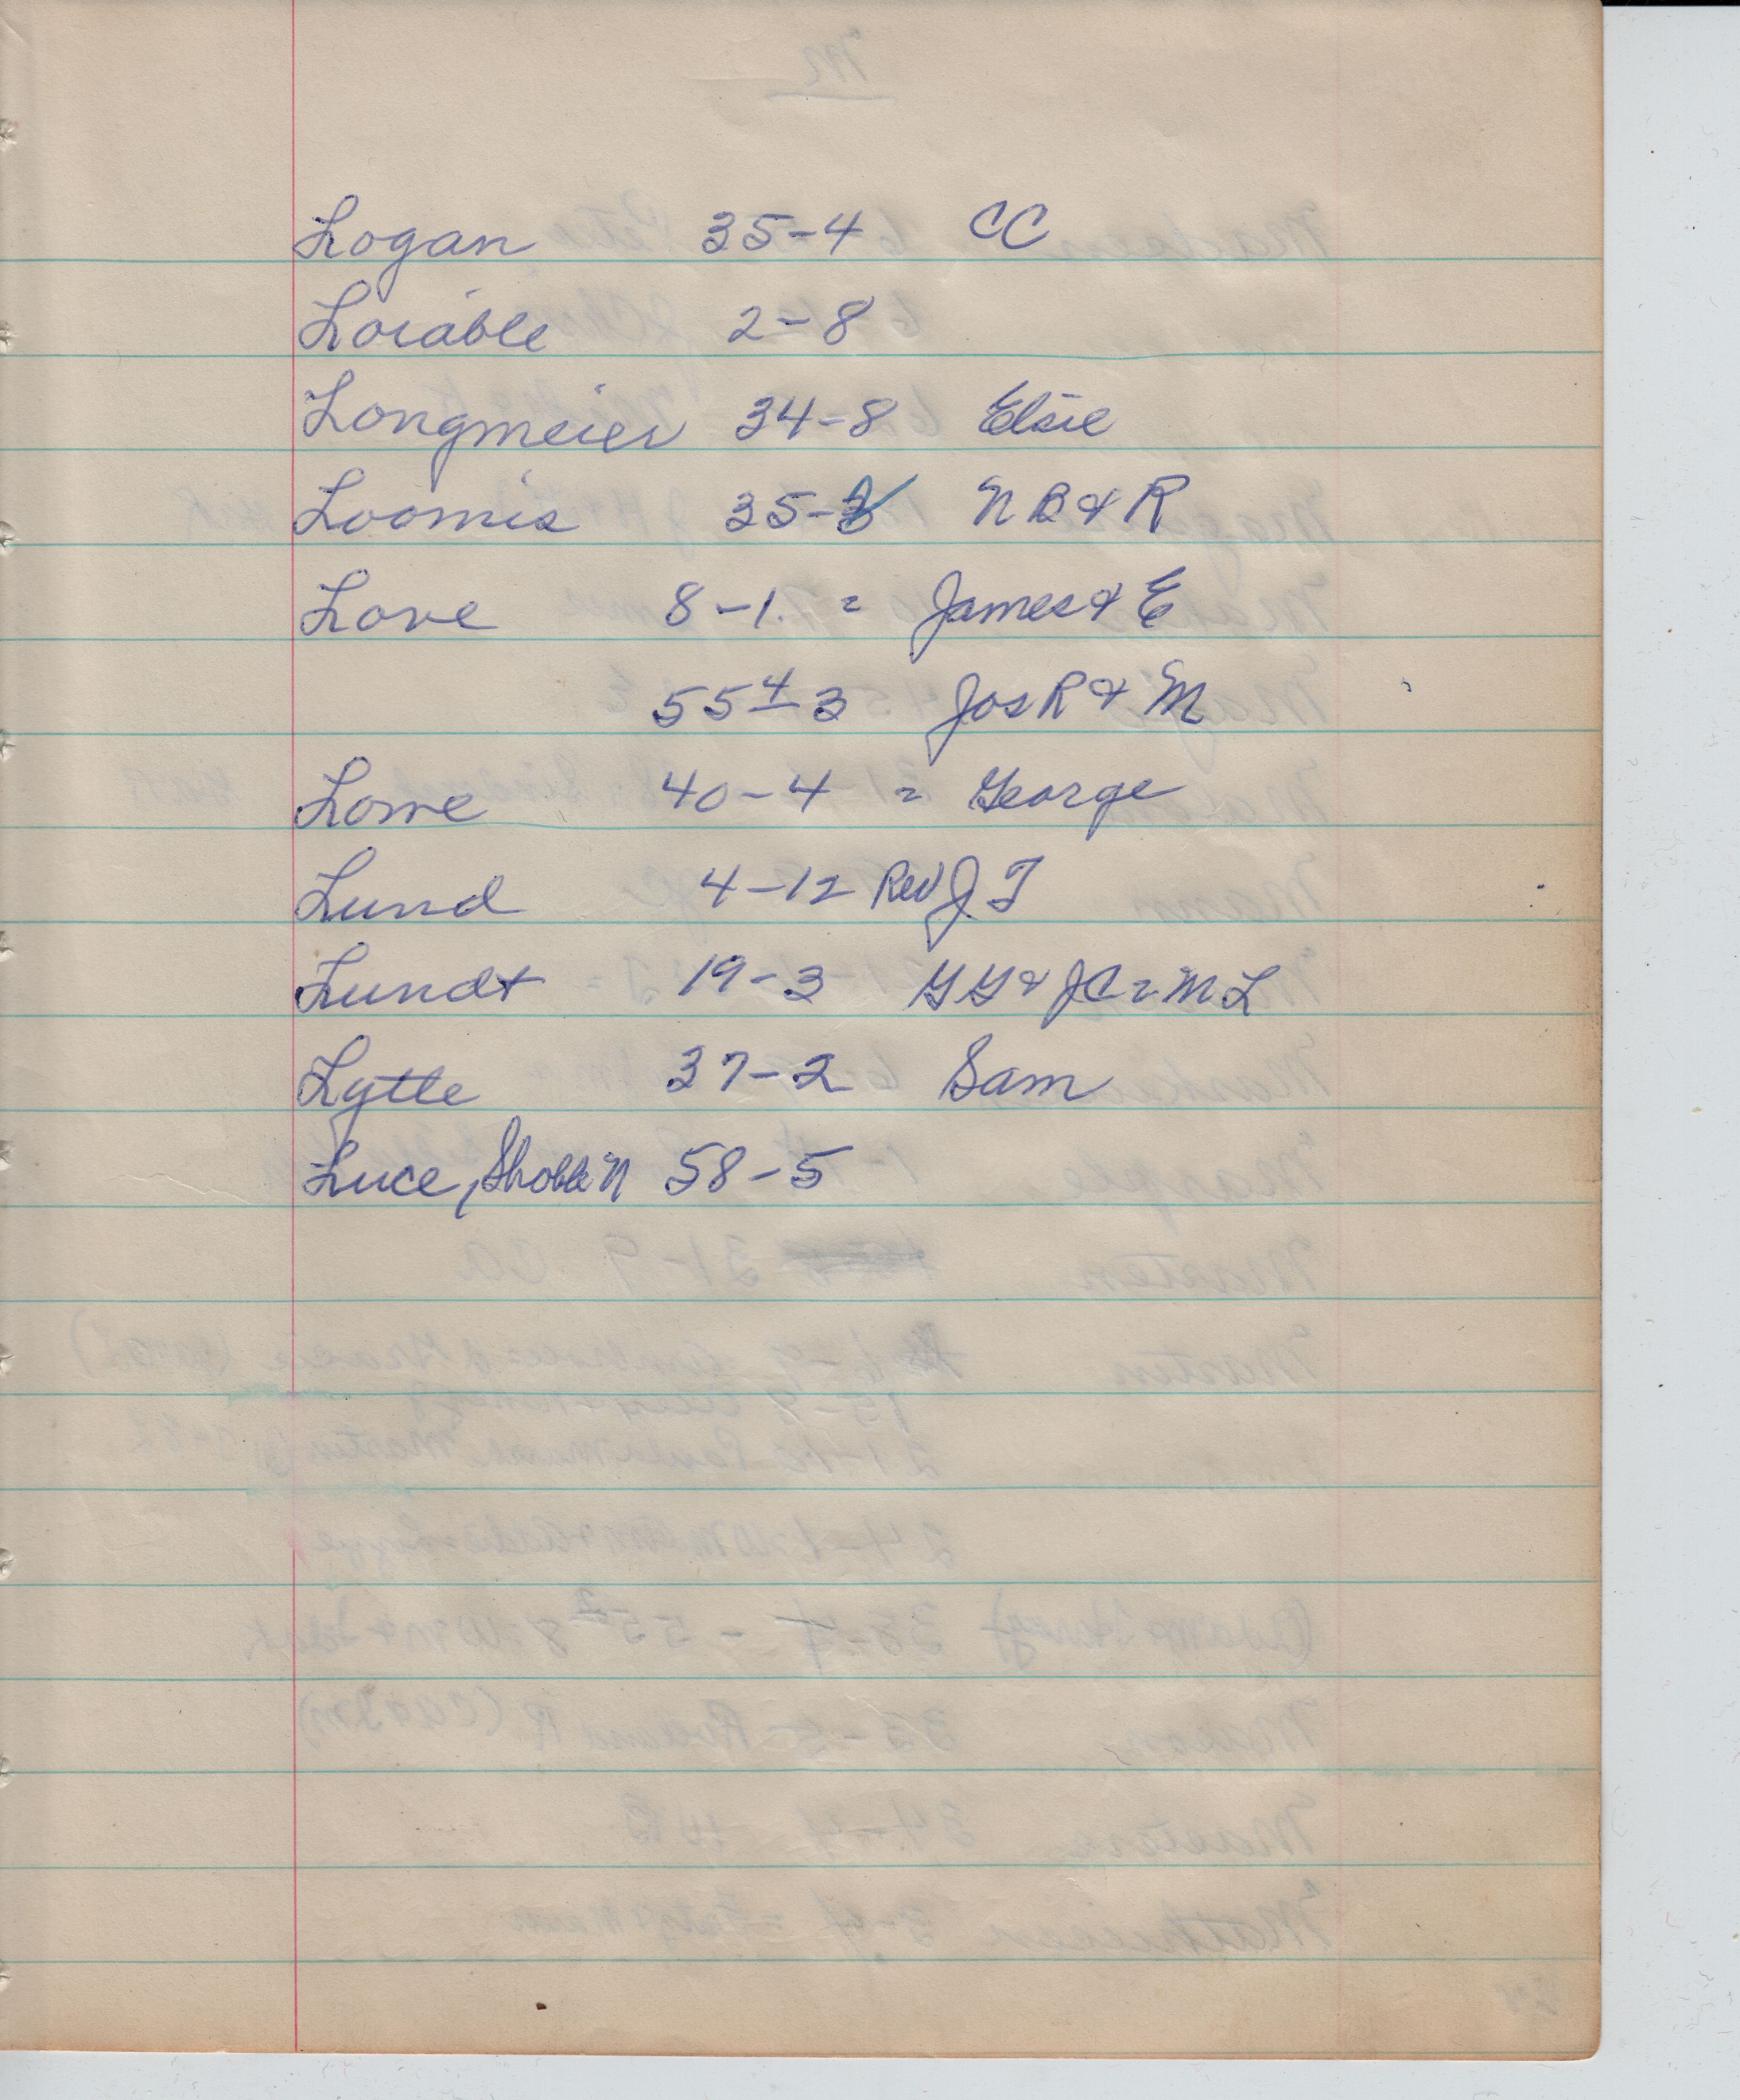 Logan 35-4 CC
Loiable 2-8
Longmeier 34-8 Elsie
Loomis 35-3 N B & R
Love 8-1. = James & E
55 4-3 Jos R & M
Lowe 40-4 = George
Lund 4-12 Rev J T
Lundt 19-3 G G & J C = M L
Lytle 37-2 Sam
Luce, 58-5